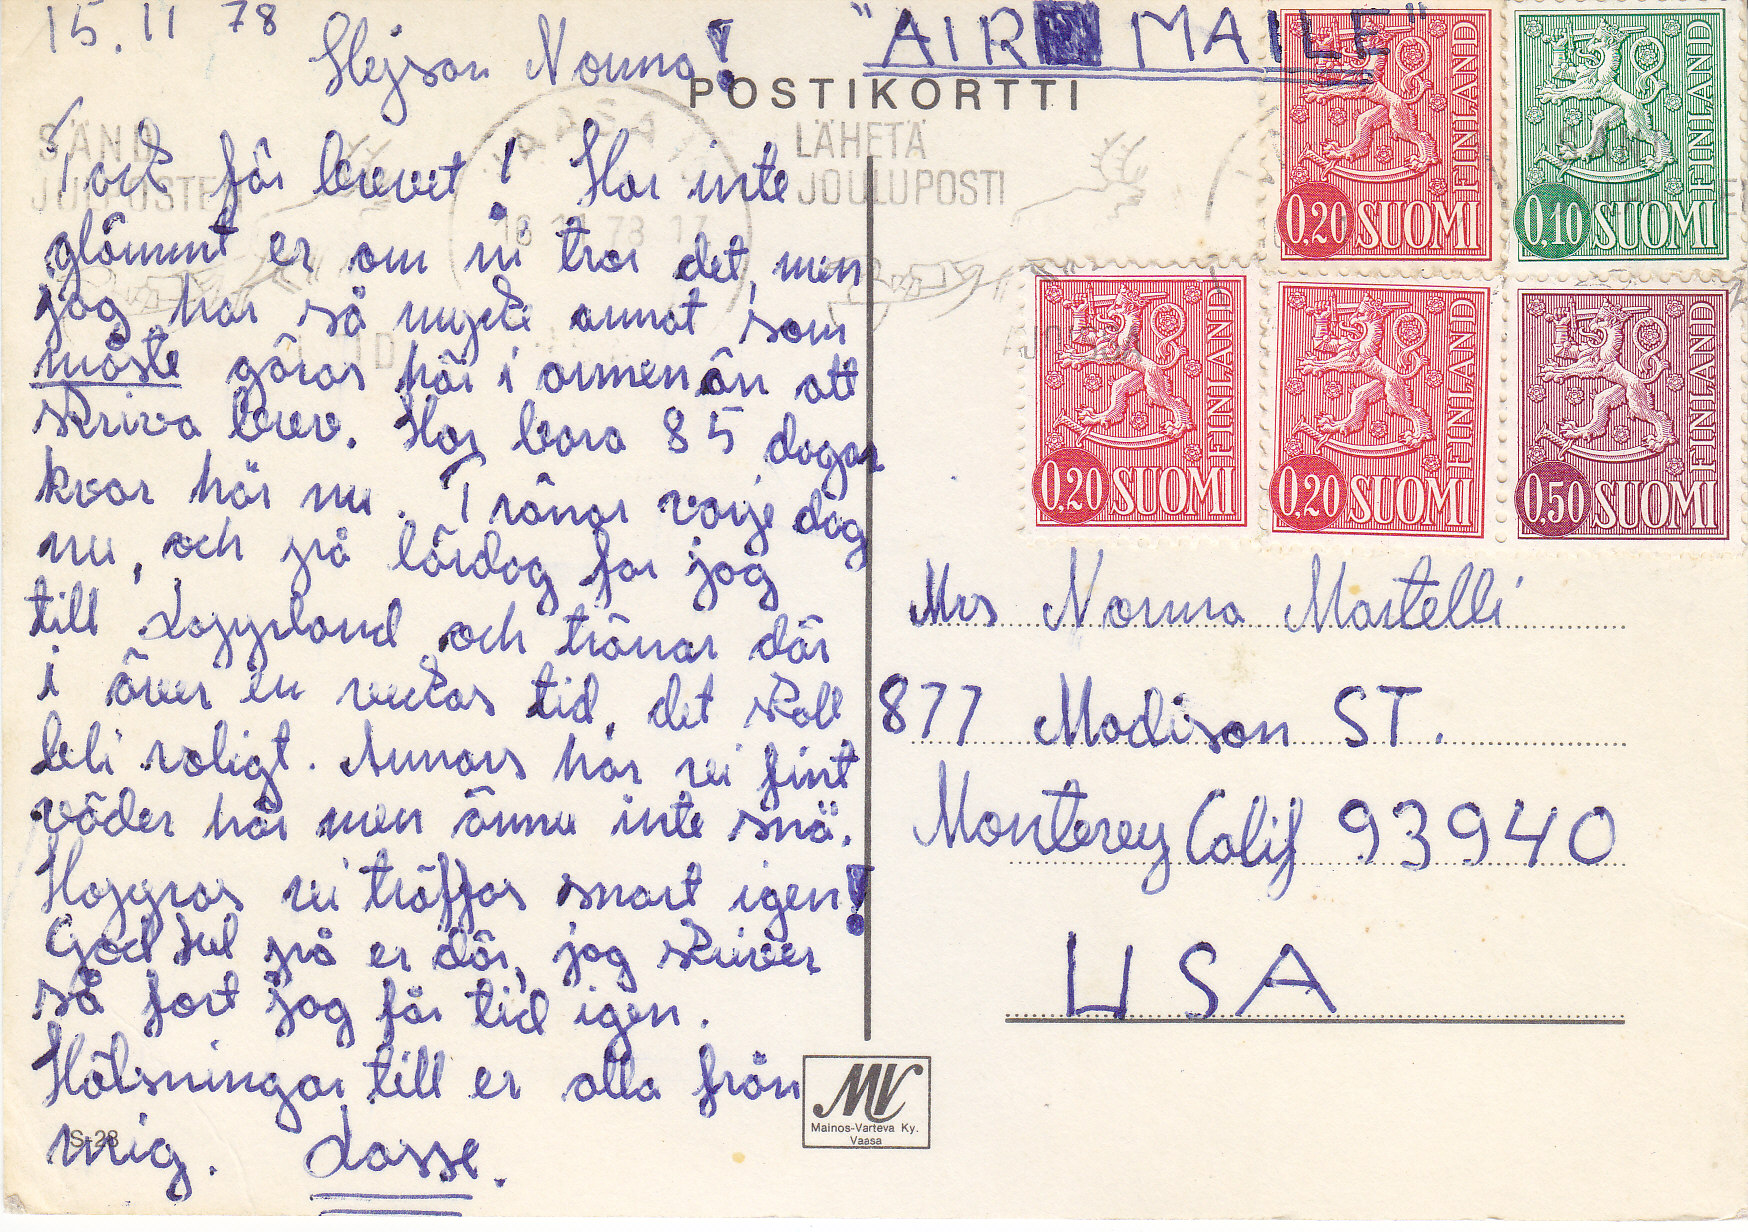 15.11 78
Hejsan Norma!
Tack för brevet! Har inte
glömmt er om ni tror det, men
jag har så mycke annat som
måste göras här i armen än att
skriva brev. Har bara 85 dagar
kvar här nu. Tränar varje dag
nu, och på lördag far jag
till Lappland och tränar där
i över en veckas tid, det skall
bli roligt. Annars har vi fint
väder här men ännu inte snö.
Hoppas vi träffas snart igen!
God Jul på er där, jag skriver
så fort jag får tid igen.
Hälsningar till er alla från
mig. Lasse.
S-28
"AIR MAILE"
POSTIKORTTI
SÄND
JULPOSTEN
18.11.78 17
LÄHETÄ
JOULUPOSTI
0,20 SUOMI FINLAND
0,10 SUOMI FINLAND
0,20 SUOMI FINLAND
0,20 SUOMI FINLAND
0,50 SUOMI FINLAND
Mrs Norma Martelli
877 Madison ST.
Monterey Calif 93940
USA
MV
Mainos-Varteva Ky.
Vaasa